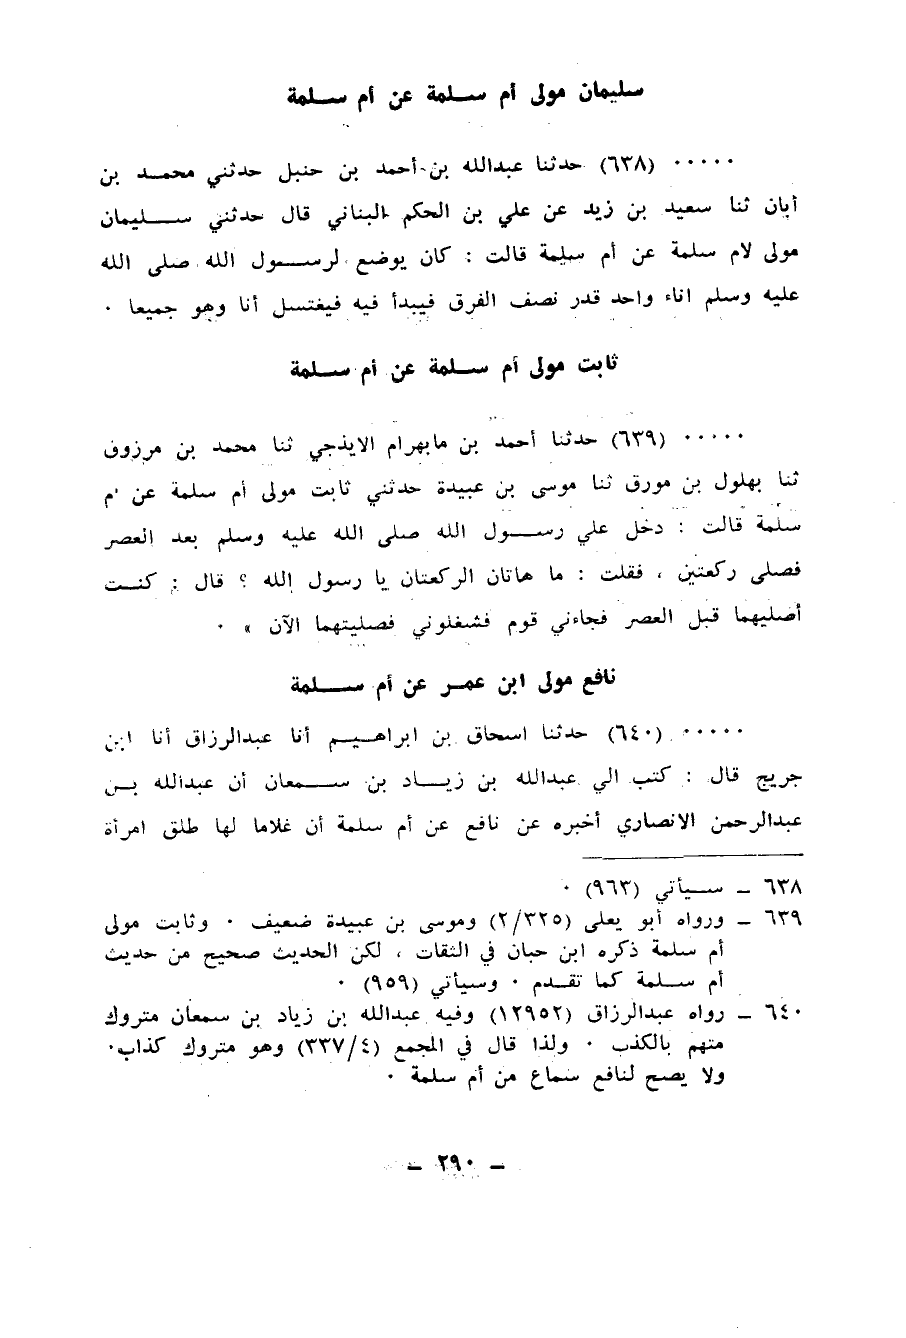 سليمان مولى أم سـلمة عن أم سـلمة
..... (٦٣٨) حدثنا عبدالله بن أحمد بن حنبل حدثني محمـد بن
أبان ثنا سعيد بن زيد عن علي بن الحكم البناني قال حدثني سـليمان
مولى لام سلمة عن أم سلمة قالت : كان يوضع لرسـول الله صلى الله
عليه وسلم اناء واحد قدر نصف الفرق فيبدأ فيه فيغتسل أنا وهو جميعا .
ثابت مولى أم سـلمة عن أم سـلمة
..... (٦٣٩) حدثنا أحمد بن مابهرام الايذجي ثنا محمد بن مرزوق
ثنا بهلول بن مورق ثنا موسى بن عبيدة حدثني ثابت مولى أم سلمة عن أم
سلمة قالت : دخل علي رسـول الله صلى الله عليه وسلم بعد العصر
فصلى ركعتين ، فقلت : ما هاتان الركعتان يا رسول الله ؟ قال : كنـت
أصليهما قبل العصر فجاءني قوم فشغلوني فصليتهما الآن » .
نافع مولى ابن عمـر عن أم سـلمة
..... (٦٤٠) حدثنا اسحاق بن ابراهـيم أنا عبدالرزاق أنا ابن
جريج قال : كتب الي عبدالله بن زيـاد بن سـمعان أن عبدالله بـن
عبدالرحمن الانصاري أخبره عن نافع عن أم سلمة أن غلاما لها طلق امرأة
٦٣٨ ـ سـيأتي (٩٦٣) .
٦٣٩ ـ ورواه أبو يعلى (٢/٣٢٥) وموسى بن عبيدة ضعيف . وثابت مولى
أم سلمة ذكره ابن حبان في الثقات ، لكن الحديث صحيح من حديث
أم سـلمة كما تقـدم . وسيأتي (٩٥٩) .
٦٤٠ ـ رواه عبدالرزاق (١٢٩٥٢) وفيه عبدالله بن زياد بن سمعان متروك
متهم بالكذب . ولذا قال في المجمع (٣٣٧/٤) وهو متروك كذاب.
ولا يصح لنافع سماع من أم سلمة .
ـ ٢٩٠ ـ